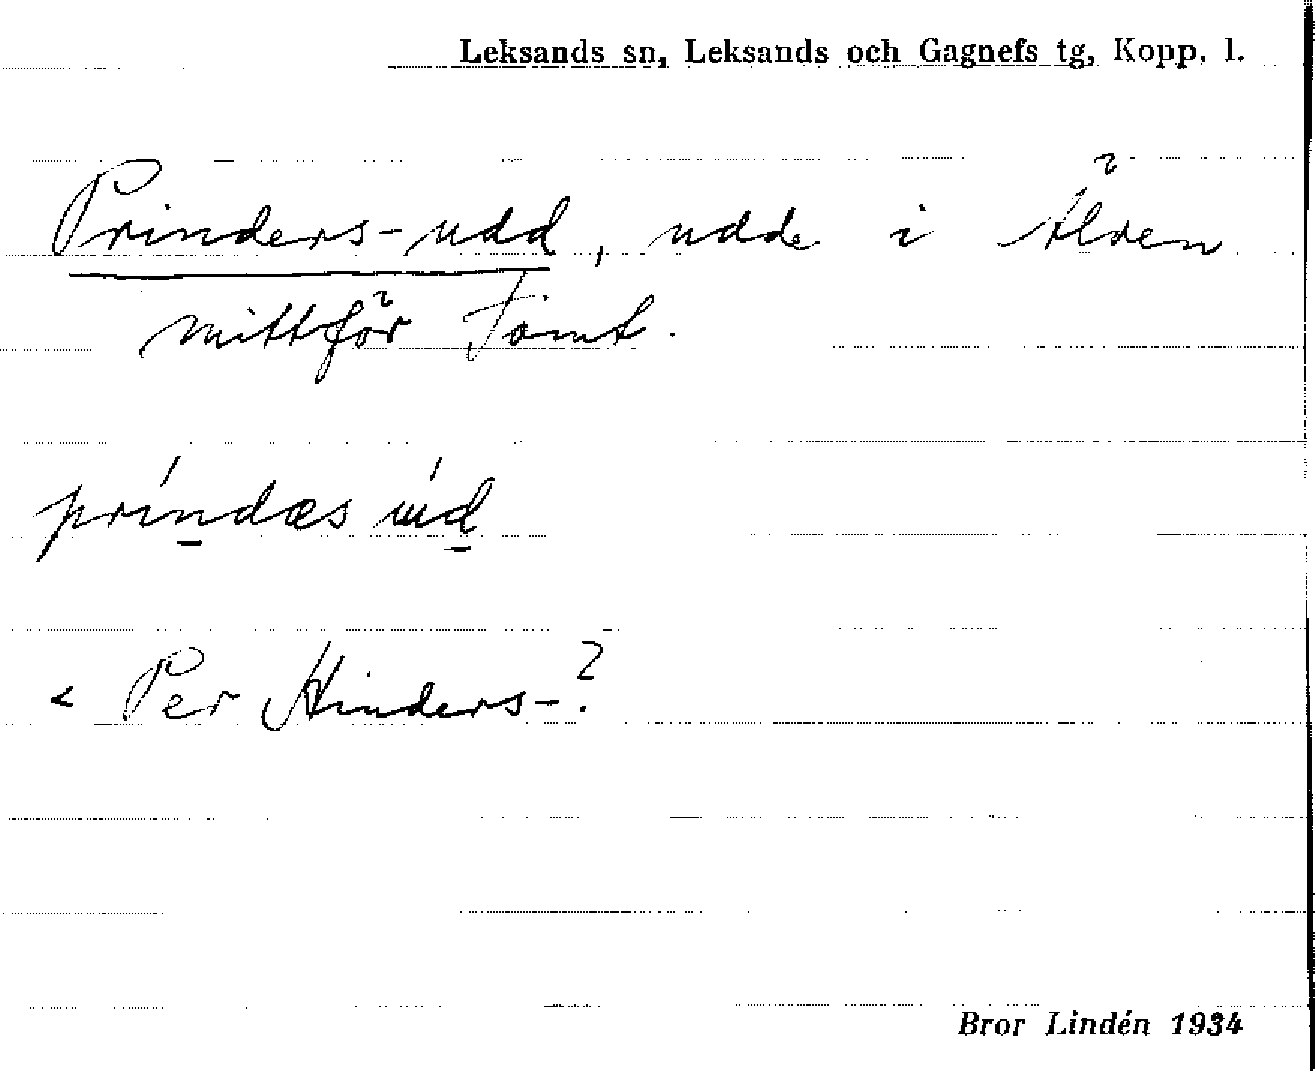 Leksands sn, Leksands och Gagnefs tg, Kopp. l.
Prinders-udd, udde i Älven
mittför Tomt.
príndæs úd
< Per Hinders-?
Bror Lindén 1934